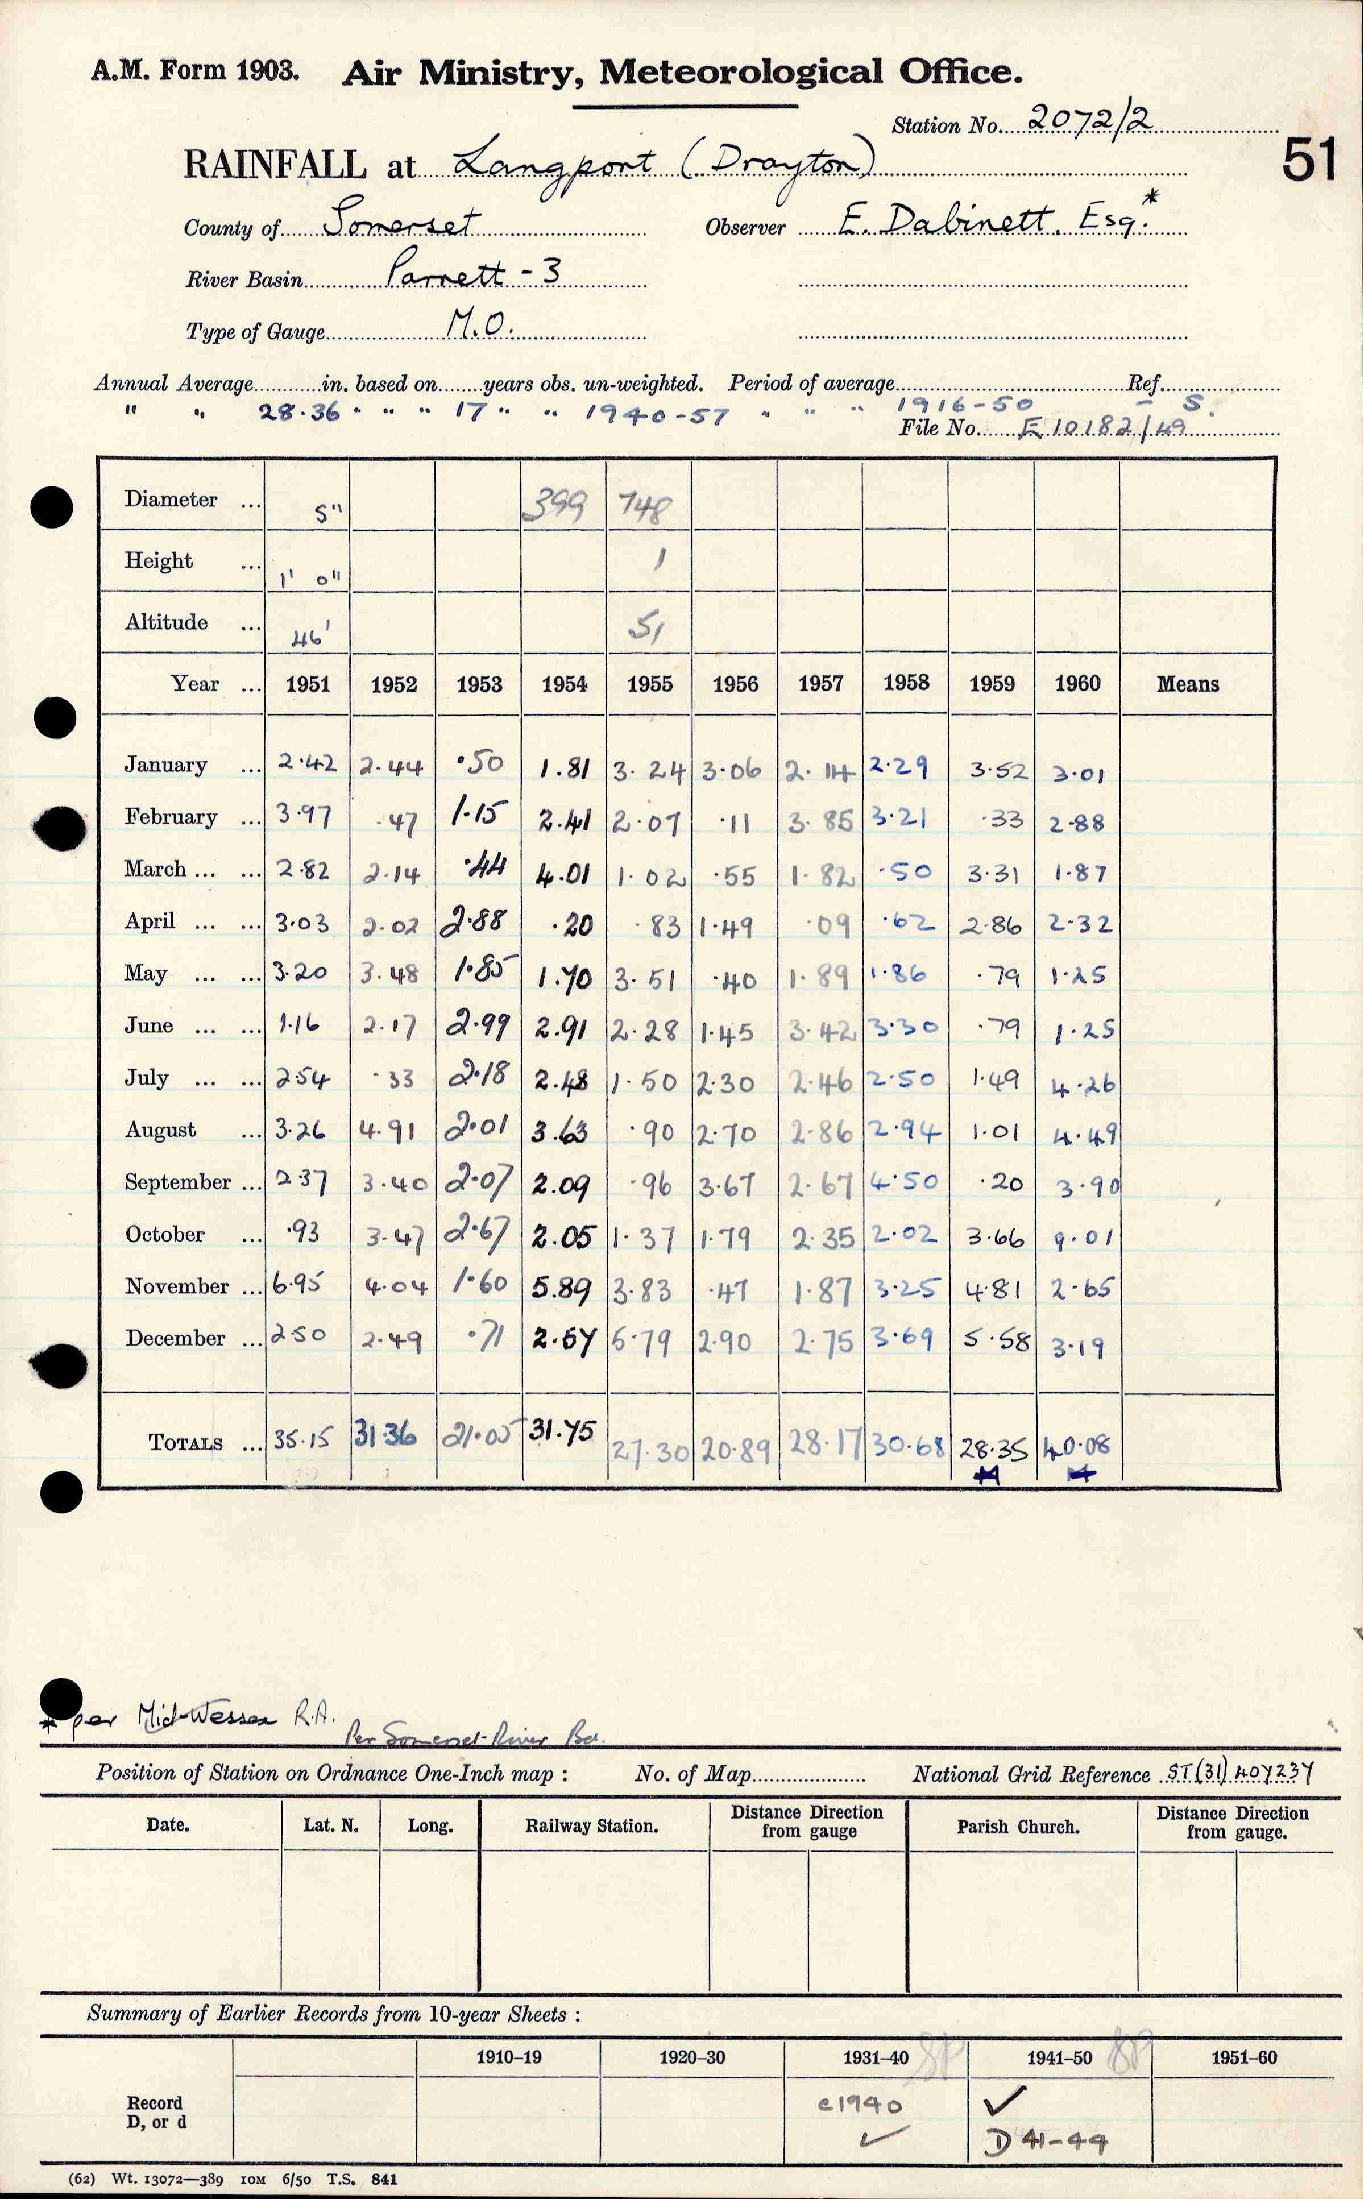 A.M. Form 1903. Air Ministry, Meteorological Office.
Station No. 2072/2
51
RAINFALL at Langport (Drayton)
County of Somerset Observer E. Dabinett. Esq.*
River Basin Parrett - 3
Type of Gauge M.O.
Annual Average in. based on years obs. un-weighted. Period of average Ref.
" " 28.36 " " " 17 " " 1940-57 " " " 1916-50 - S.
File No. E 10182/49
Diameter ... 5" 399 748
Height ... 1' 0" 1
Altitude ... 46' 51
Year ... 1951 1952 1953 1954 1955 1956 1957 1958 1959 1960 Means
January ... 2.42 2.44 .50 1.81 3.24 3.06 2.14 2.29 3.52 3.01
February ... 3.97 .47 1.15 2.41 2.07 .11 3.85 3.21 .33 2.88
March ... ... 2.82 2.14 .44 4.01 1.02 .55 1.82 .50 3.31 1.87
April ... ... 3.03 2.02 2.88 .20 .83 1.49 .09 .62 2.86 2.32
May ... ... 3.20 3.48 1.85 1.70 3.51 .40 1.89 1.86 .79 1.25
June ... ... 1.16 2.17 2.99 2.91 2.28 1.45 3.42 3.30 .79 1.25
July ... ... 2.54 .33 2.18 2.48 1.50 2.30 2.46 2.50 1.49 4.26
August ... 3.26 4.91 2.01 3.63 .90 2.70 2.86 2.94 1.01 4.49
September ... 2.37 3.40 2.07 2.09 .96 3.67 2.67 4.50 .20 3.90
October ... .93 3.47 2.67 2.05 1.37 1.79 2.35 2.02 3.66 9.01
November ... 6.95 4.04 1.60 5.89 3.83 .47 1.87 3.25 4.81 2.65
December ... 2.50 2.49 .71 2.57 5.79 2.90 2.75 3.69 5.58 3.19
TOTALS ... 35.15 31.36 21.05 31.75 27.30 20.89 28.17 30.68 28.35 40.08
* per Mid-Wessex R.A.
Per Somerset River Bd.
Position of Station on Ordnance One-Inch map : No. of Map National Grid Reference ST(31)407237
Date. Lat. N. Long. Railway Station. Distance Direction from gauge Parish Church. Distance Direction from gauge.
Summary of Earlier Records from 10-year Sheets :
1910–19 1920–30 1931–40 1941–50 1951–60
Record c1940 ✓
D, or d ✓ D 41-44
(62) Wt. 13072—389 10M 6/50 T.S. 841